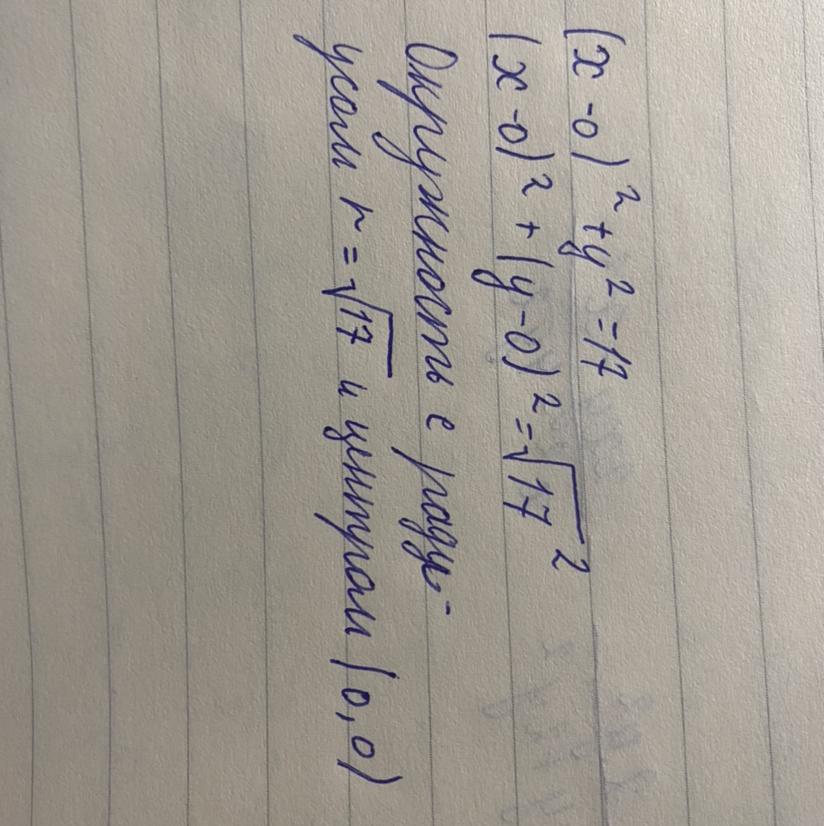 (x-0)² + y² = 17
(x-0)² + (y-0)² = √17²
Окружность с ради-
усом r = √17 и центром (0,0)